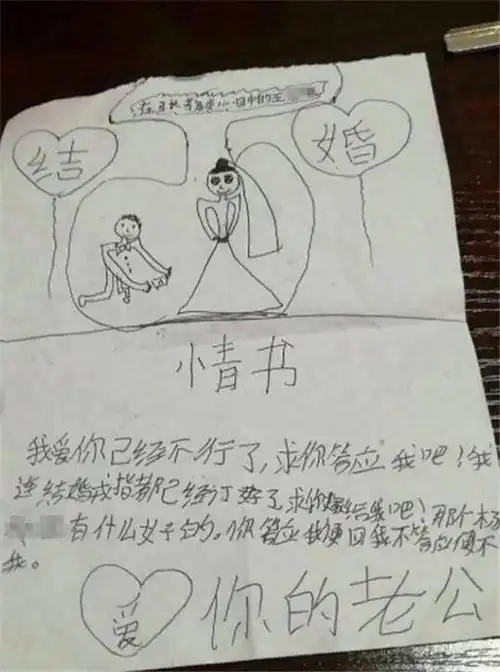 心目中的
结 婚
情书
我爱你已经不行了,求你答应我吧!我
连结婚戒指都已经订好了求你嫁给我吧!那个杨
有什么好的。你答应我便回我不答应便不
我。
爱 你的老公